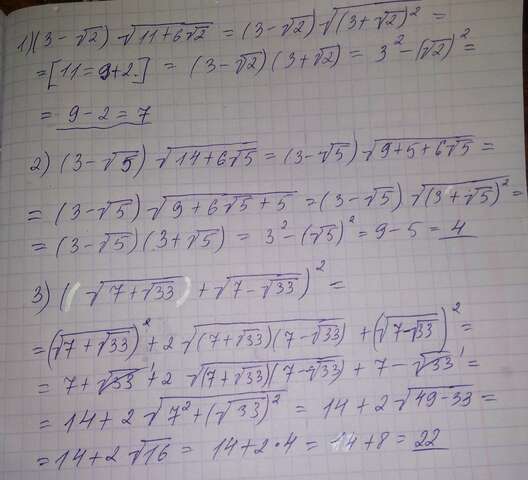 1)(3-√2)·√(11+6√2) = (3-√2)·√((3+√2)²) =
=[11=9+2.] = (3-√2)(3+√2) = 3²-(√2)² =
= 9-2=7
2) (3-√5)·√(14+6√5) = (3-√5)·√(9+5+6√5) =
= (3-√5)·√(9+6√5+5) = (3-√5)·√((3+√5)²) =
= (3-√5)(3+√5) = 3²-(√5)² = 9-5=4
3) ((√(7+√33)) + √(7-√33))² =
= (√(7+√33))² + 2√((7+√33)(7-√33)) + (√(7-√33))² =
= 7+√33 + 2√((7+√33)(7-√33)) + 7-√33 =
= 14+2√(7²+(√33)²) = 14+2√(49-33) =
= 14+2√16 = 14+2·4 = 14+8=22